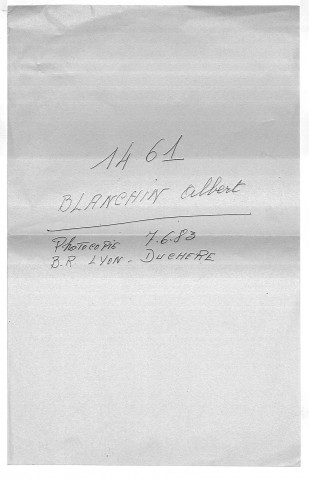 1461
BLANCHIN Albert
Photocopie 7.6.83
B.R LYON - DUCHERE